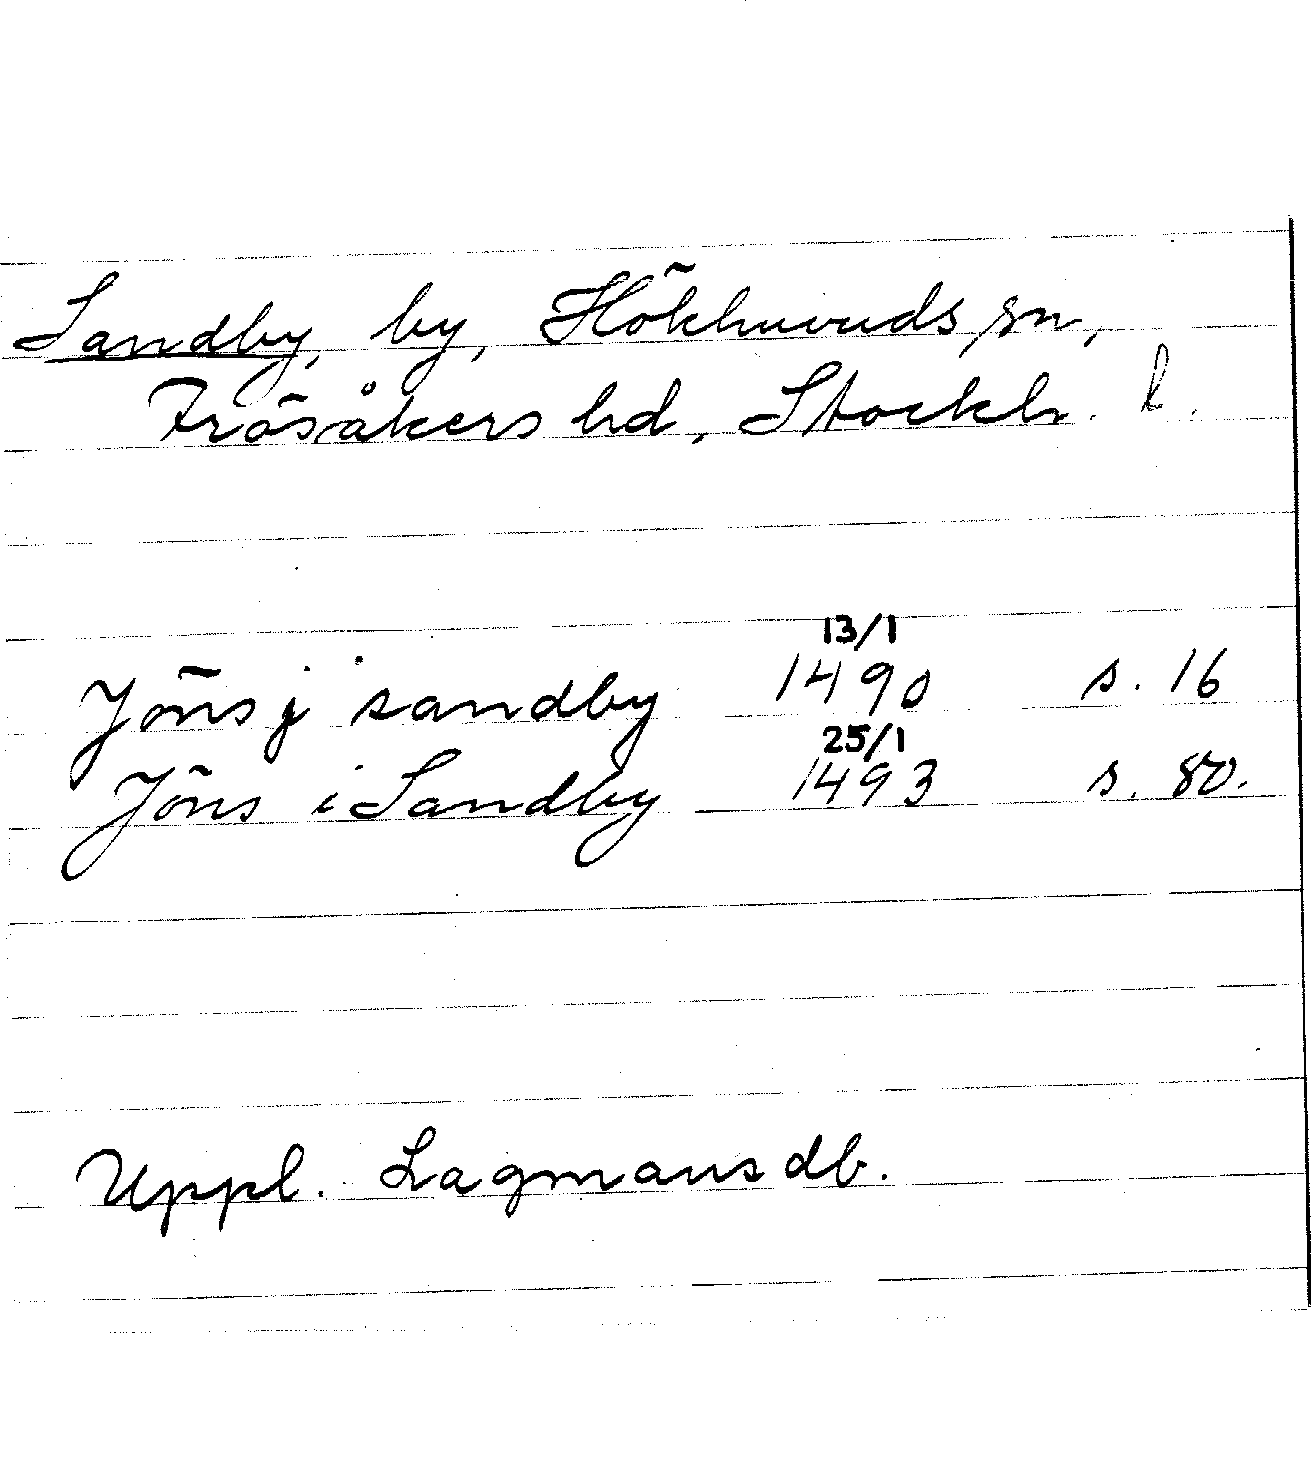 Sandby, by, Hökhuvuds sn,
Frösåkers hd, Stockh. l.
13/1
Jöns j sandby 1490 s. 16
25/1
Jöns i Sandby 1493 s. 80.
Uppl. Lagmansdb.